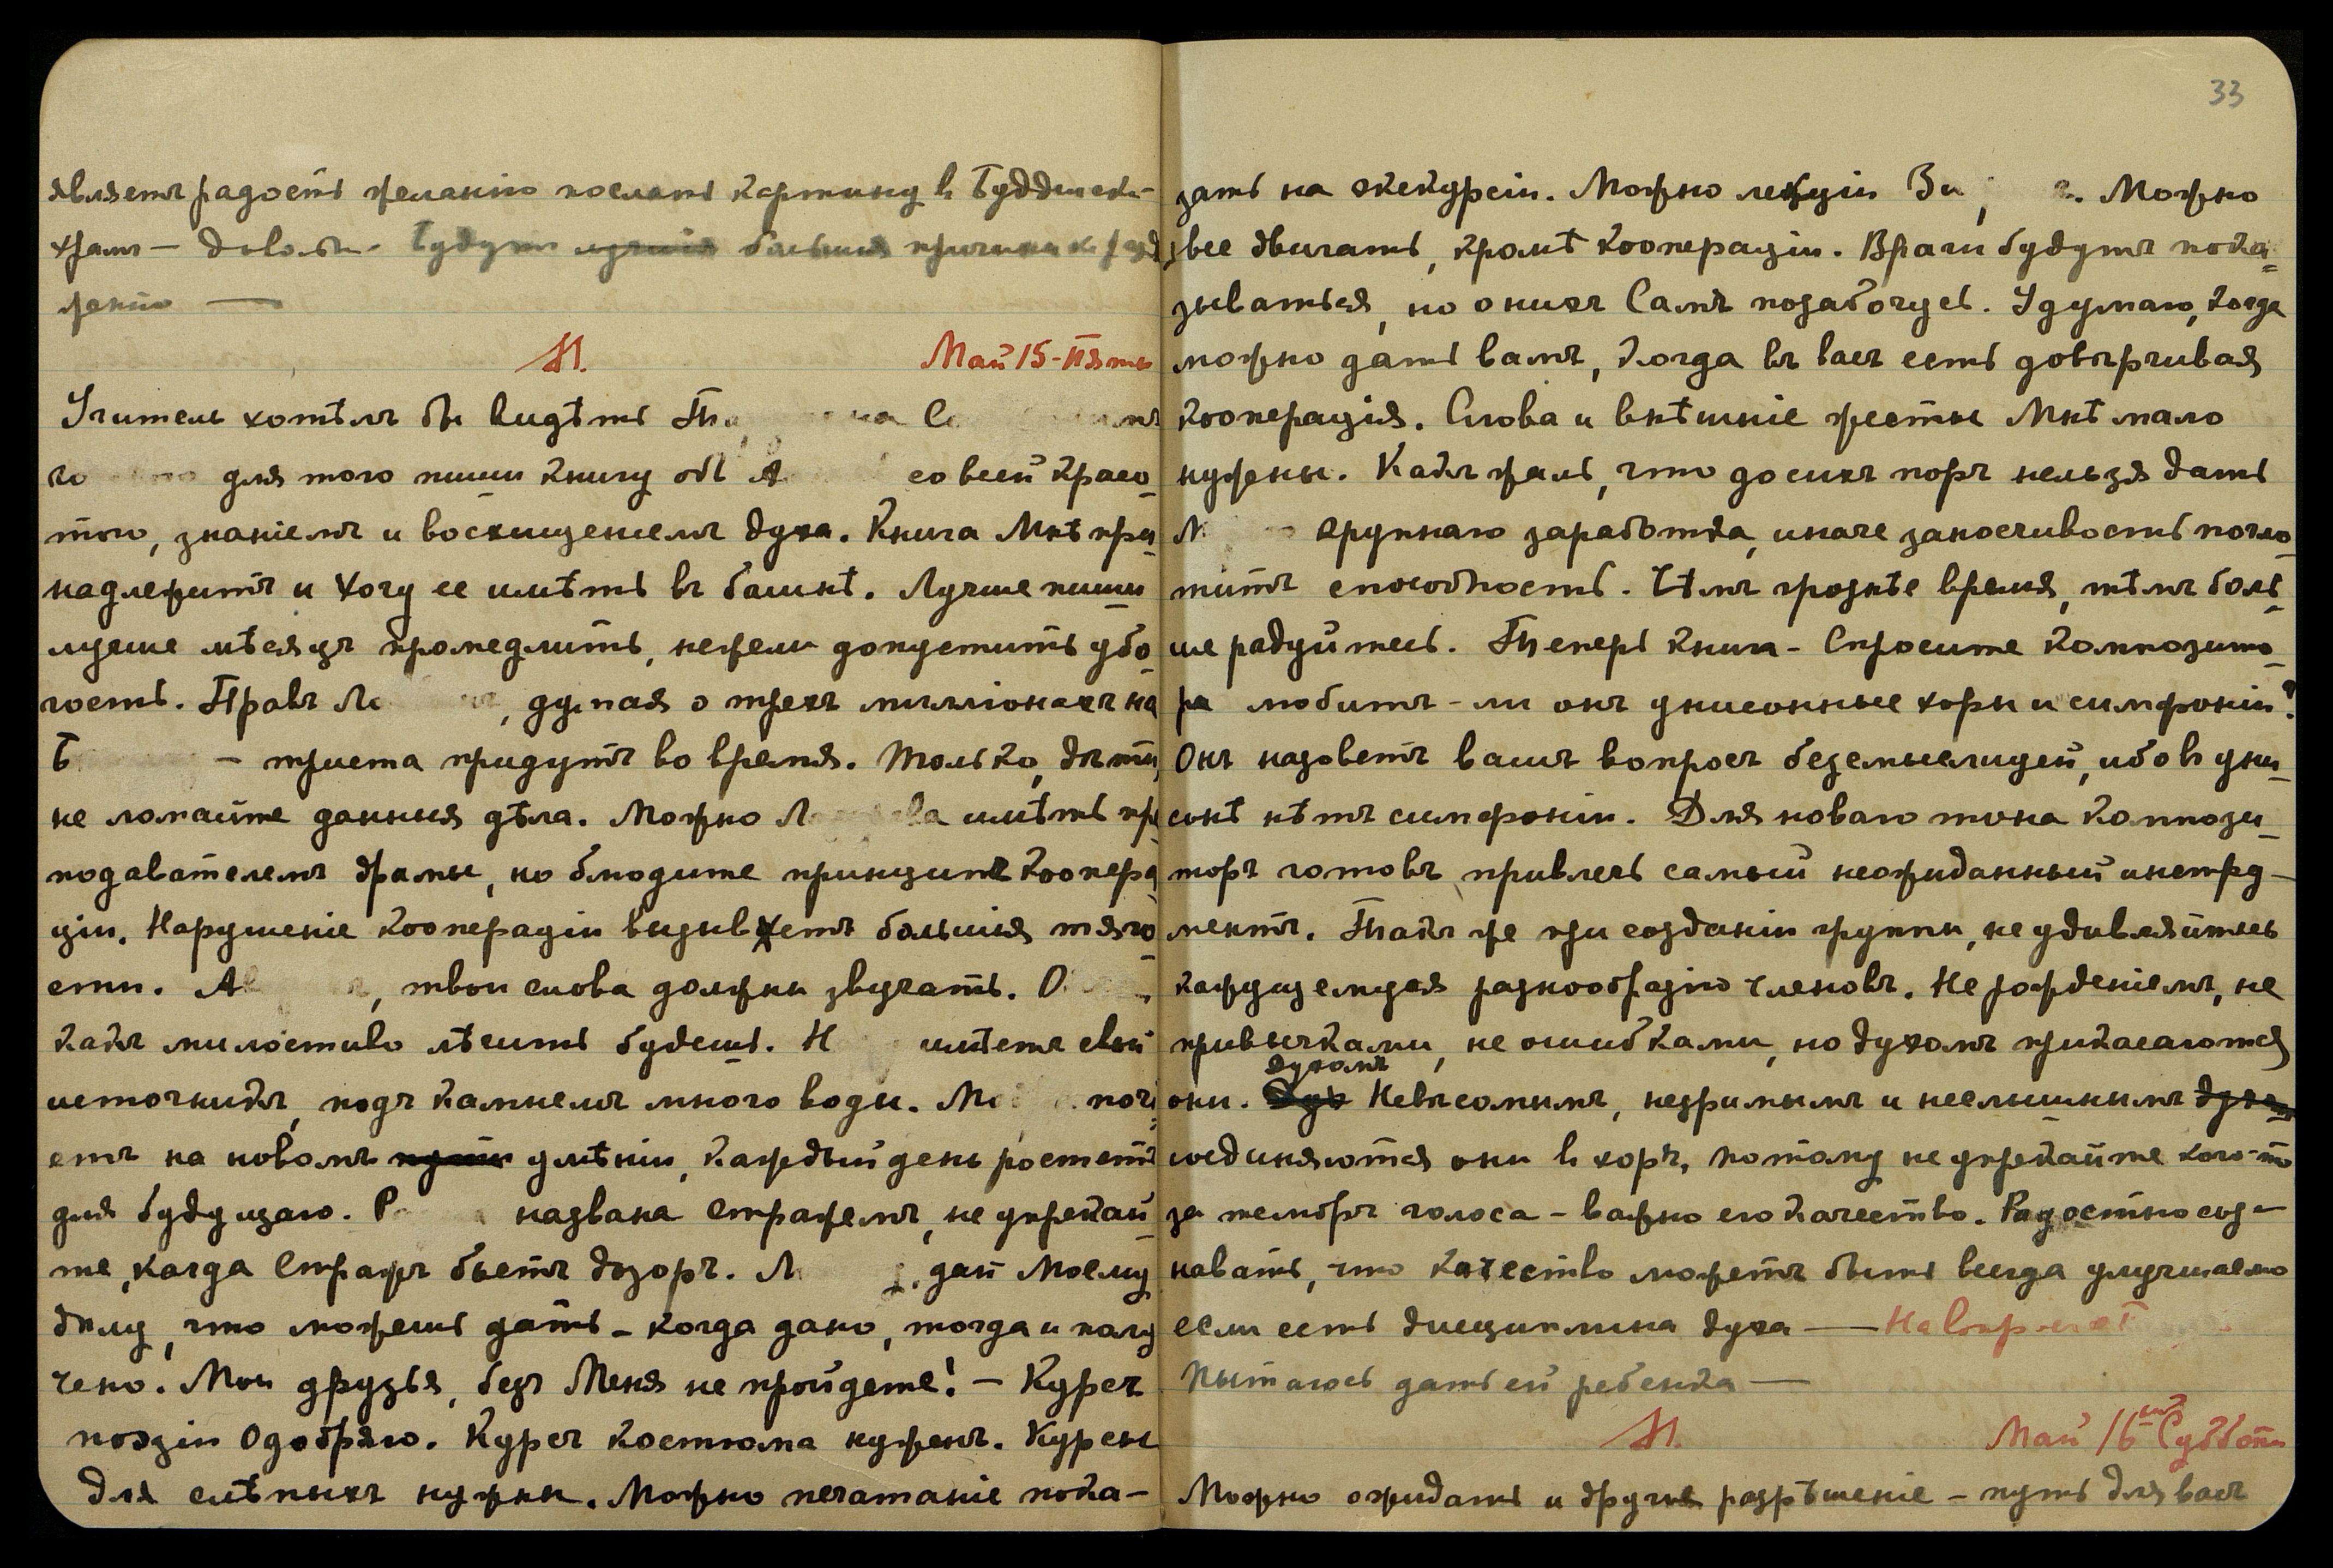 являетъ радость желанію послать картину въ Буддистск-
храмъ — довольн. Будутъ большія причины къ разд
женію —
М. Май 15 - Пятн
Учитель хотѣлъ бы видѣть
для того пиши книгу объ А со всей красо-
тою, знаніемъ и восхищеніемъ духа. Книга Мнѣ при-
надлежитъ и хочу ее имѣть въ башнѣ. Лучше пиши
лучше мѣсяцъ промедлить, нежели допустить убо-
гость. Правъ Ло , думая о трехъ милліонахъ на
Б — триста придутъ во время. Только, дѣти,
не ломайте данныя дѣла. Можно Л ва имѣть пре
подавателемъ драмы, но блюдите принципъ коопера
ціи. Нарушеніе кооперации вызываетъ большія тяго-
сти. Ав , твои слова должны звучать. О
какъ милостиво лѣсить будешь. Н имѣетъ свой
источникъ, подъ камнемъ много воды. Мо почі-
етъ на новомъ умѣніи, каждый день ростетъ
для будущаго. Р а названа стражемъ, не упрекай-
те, когда стражъ бьетъ дозоръ. Л , дай Моему
дому, что можешь дать — когда дано, тогда и полу
чено. Мои друзья, безъ Меня не пройдете! — Курсъ
поэзіи Одобряю. Курсъ костюма нуженъ. Курсы
для слѣпыхъ нужны. Можно печатаніе пока-
33
зать на экскурсіи. Можно лекціи Зи . Можно
все двигать, кромѣ кооперации. Враги будутъ пока-
зываться, но о нихъ Самъ позабочусь. Удумаю, когда
можно дать вамъ, когда въ васъ есть довѣрчивая
кооперація. Слова и внѣшніе жесты Мнѣ мало
нужены. Какъ жаль, что до сихъ поръ нельзя дать
М крупнаго заработка, иначе заносчивость погло-
титъ способность. Чѣмъ грознѣе время, тѣмъ боль-
ше радуйтесь. Теперь книга - Спросите композито-
ра любитъ-ли онъ унисонные хоры и симфоніи?
Онъ назоветъ вашъ вопросъ безсмыслицей, ибо въ уни-
сонѣ нѣтъ симфоніи. Для новаго тона компози-
торъ готовъ привлечь самый неожиданный инстру-
ментъ. Такъ же при созданіи группы, не удивляйтесь
кажущемуся разнообразію членовъ. Не рожденіемъ, не
привычками, не ошибками, но духомъ прикасаются
они. духомъ Невѣсомымъ, незримымъ и неслышнымъ
соединяются они въ хоръ, потому не упрекайте кого-то
за тембръ голоса — важно его качество. Радостно соз-
навать, что качество можетъ быть всегда улучшаемо
если есть дисциплина духа —
Пытаюсь дать ей ребенка —
М. Май 16 Суббота
Можно ожидать и другое разрѣшеніе — путь для васъ